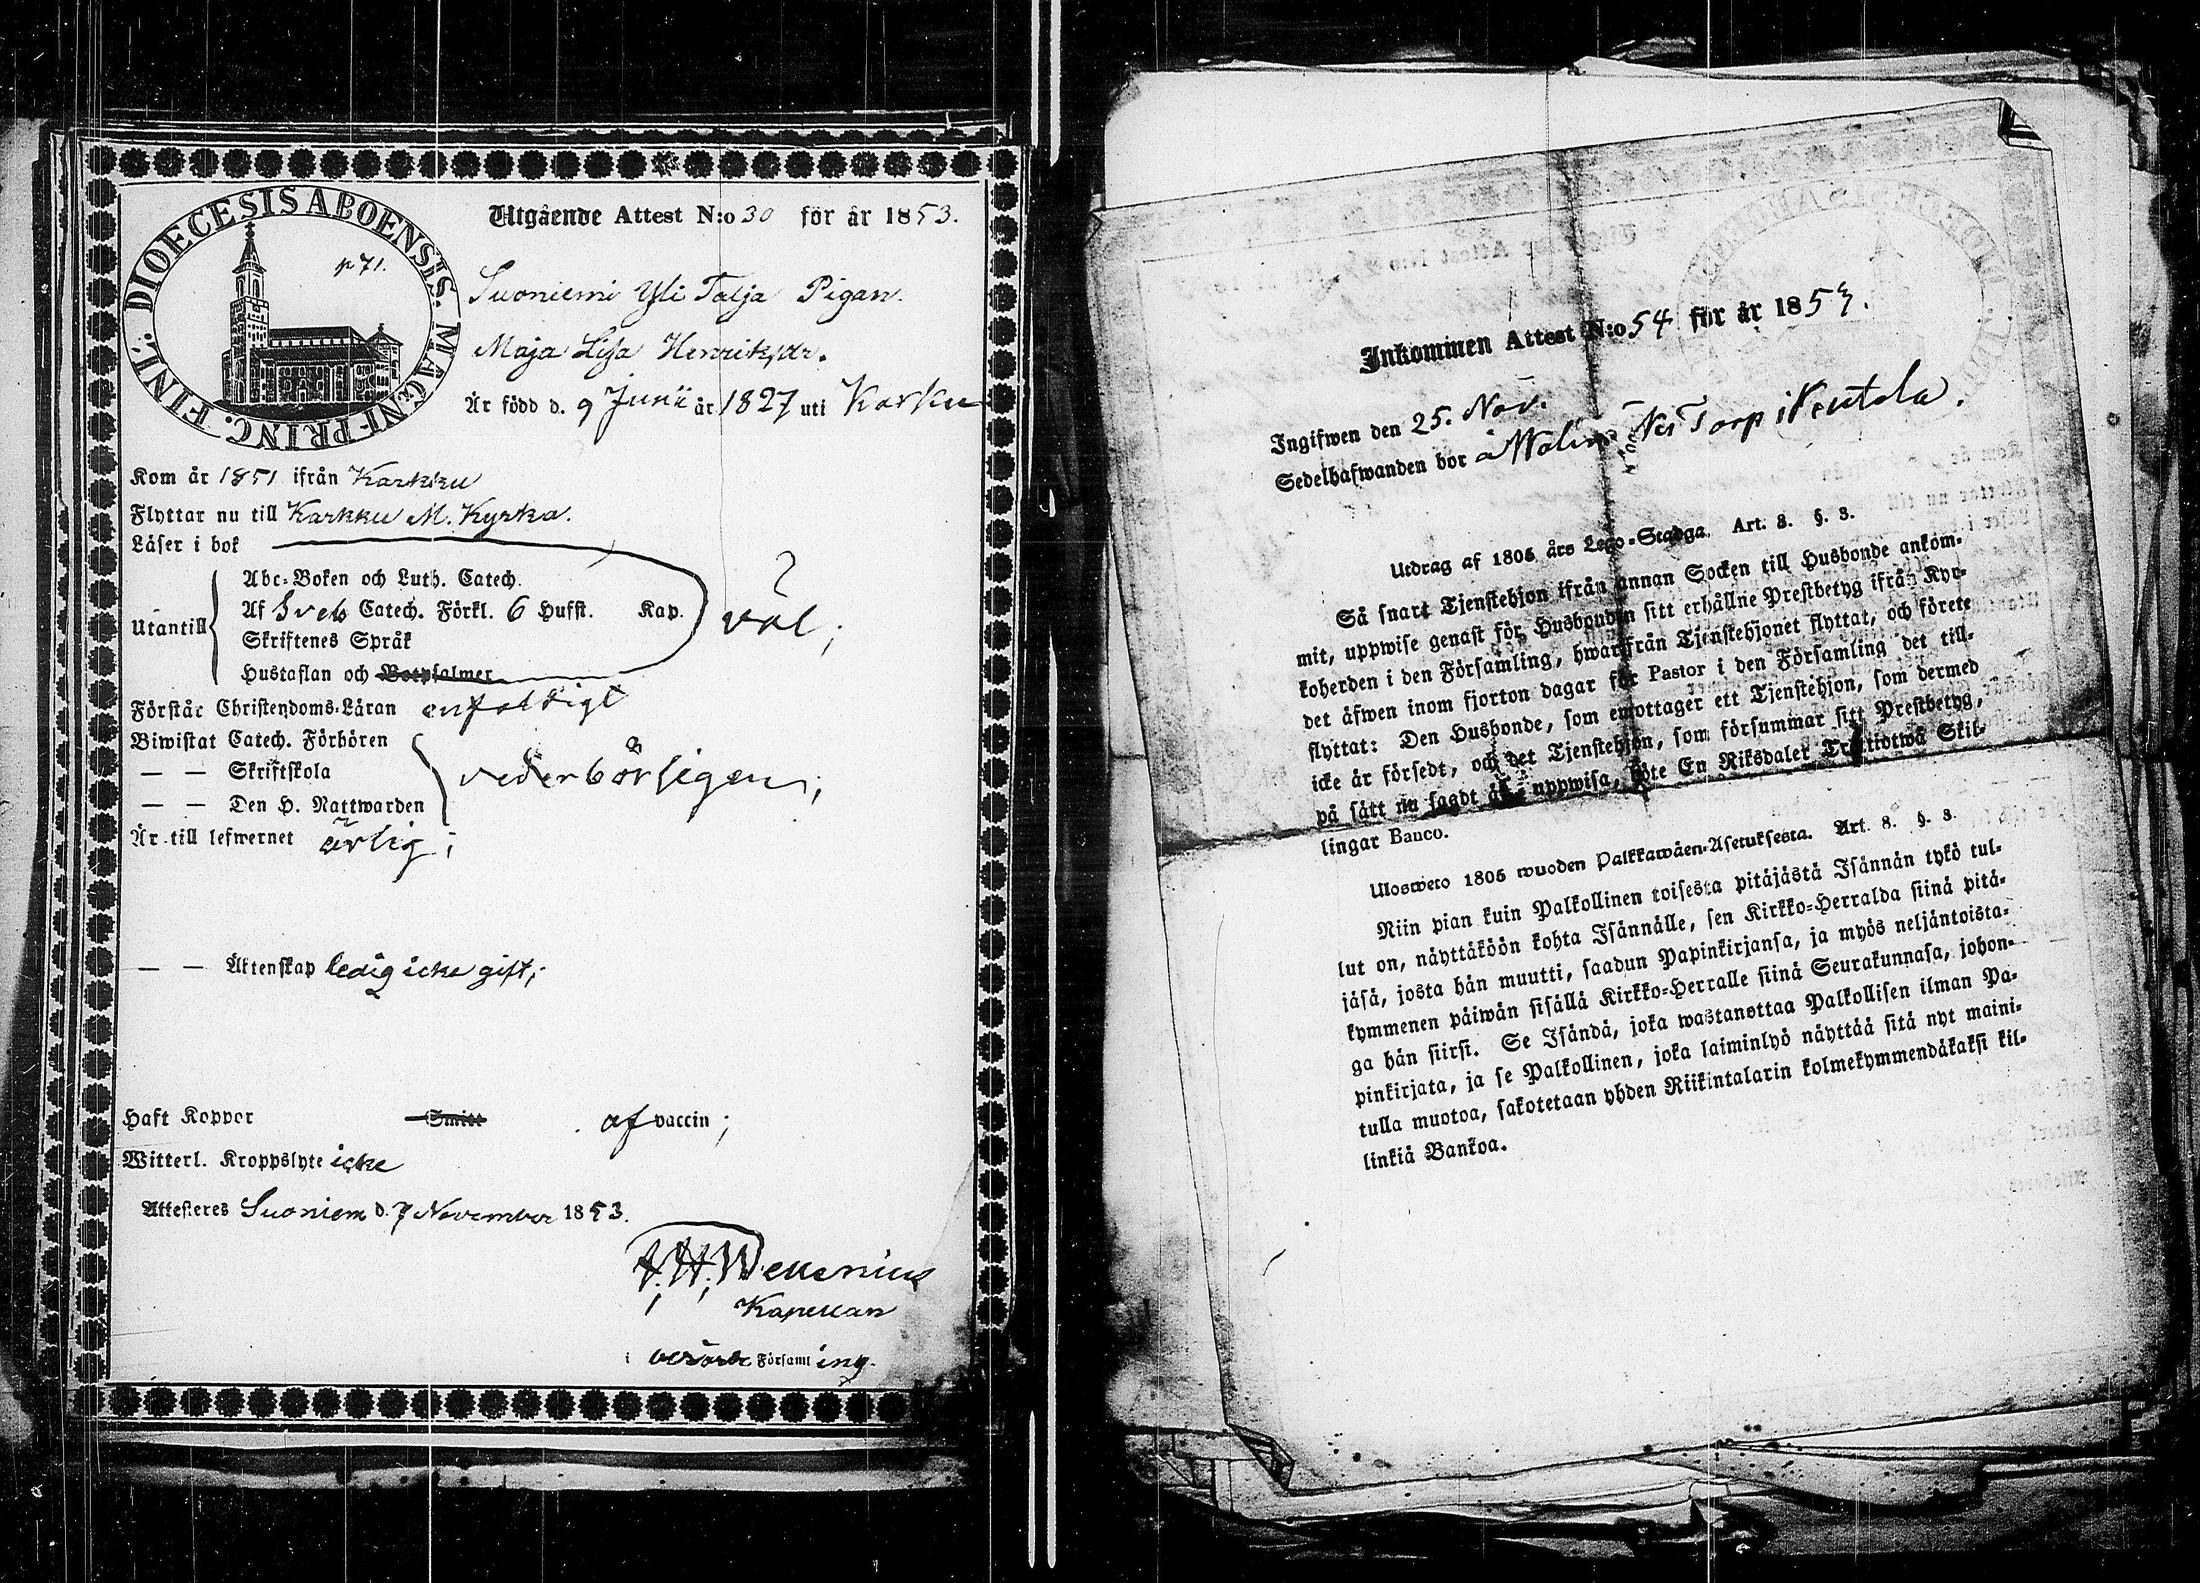 DIOECESIS ABOENSIS. MAGNI-PRINC. FINL.
p 71.
Utgående Attest N:o 30 för år 1853.
Suoniemi Yli Talja Pigan.
Maja Lisa Henriksdr.
Är född d. 9 Junii år 1827 uti Karku
Kom år 1851 ifrån Karkku
Flyttar nu till Karkku M. Kyrka.
Läser i bok
Utantill
Abc-Boken och Luth. Catech.
Af Sveb Catech. Förkl. 6 Hufst. Kap.
Skriftenes Språk
Hustaflan och Botpsalmer
väl;
Förstår Christendoms-Läran enfaldigt
Biwistat Catech. Förhören
— — Skriftskola
— — Den H. Nattwarden
vederbörligen;
Är till lefwernet ärlig;
— — Äktenskap ledig icke gift;
Haft Koppor Smitt af vaccin;
Witterl. Kroppslyte icke
Attesteres Suoniem d. 7 November 1853.
Kapellan
i Församling.
Inkommen Attest N:o 54 för år 1853.
Ingifwen den 25. Nov.
Sedelhafwanden bor å Torp i Keutala.
Utdrag af 1805 års Lego-Stadga, Art. 8. §. 3.
Så snart Tjenstehjon ifrån annan Socken till Husbonde ankom-
mit, uppwise genast för Husbonden sitt erhållne Prestbetyg ifrån Kyr-
koherden i den Församling, hwarifrån Tjenstehjonet flyttat, och förete
det äfwen inom fjorton dagar för Pastor i den Församling det till-
flyttat: Den Husbonde, som emottager ett Tjenstehjon, som dermed
icke är försedt, och det Tjenstehjon, som försummar sitt Prestbetyg,
på sätt nu sagdt är, uppwisa, böte En Riksdaler Trettiotwå Skil-
lingar Banco.
Ulosweto 1805 wuoden Palkkawäen-Asetuksesta. Art. 8. §. 3.
Niin pian kuin Palkollinen toisesta pitäjästä Isännän tykö tul-
lut on, näyttäköön kohta Isännälle, sen Kirkko-Herralda siinä pitä-
jäsä, josta hän muutti, saadun Papinkirjansa, ja myös neljäntoista-
kymmenen päiwän sisällä Kirkko-Herralle siinä Seurakunnasa, johon-
ga hän siirsi. Se Isändä, joka wastanottaa Palkollisen ilman Pa-
pinkirjata, ja se Palkollinen, joka laiminlyö näyttää sitä nyt maini-
tulla muotoa, sakotetaan yhden Riikintalarin kolmekymmendäkaksi kil-
linkiä Bankoa.